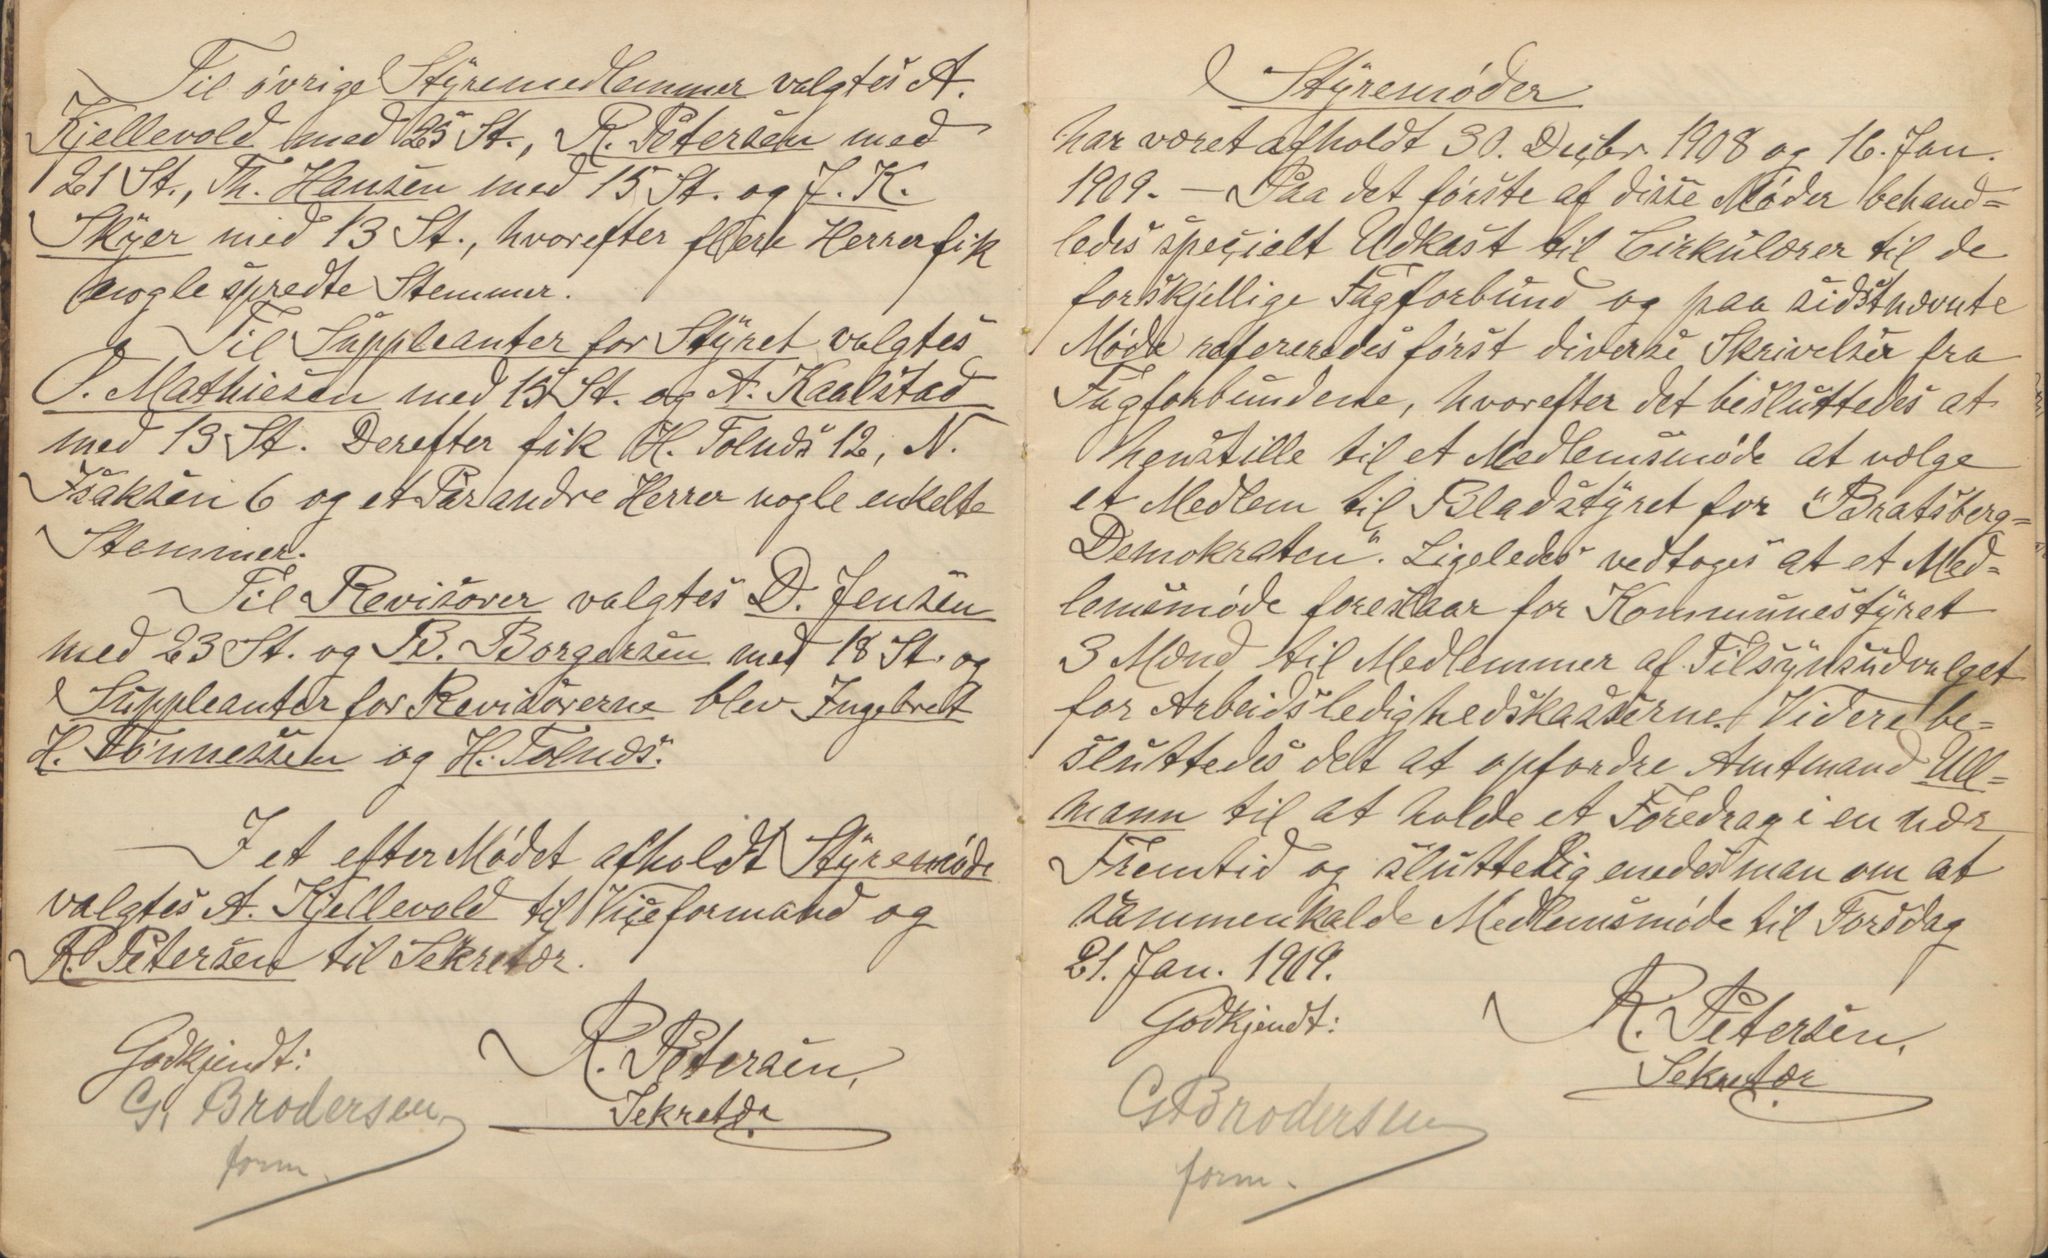 Til øvrige Styremedlemmer valgtes A.
Kjellevold med 25 St., R. Petersen med
21 St., Th. Hansen med 15 St. og J. K.
Skyer med 13 St., hvorefter flere Herrer fik
nogle spredte Stemmer.
Til Suppleanter for Styret valgtes
O. Mathiesen med 15 St. og A. Kaalstad
med 13 St. Derefter fik H. Tolnds 12, N.
Isaksen 6 og et Par andre Herrer nogle enkelte
Stemmer.
Til Revisorer valgtes D. Jensen
med 23 St. og B. Borgersen med 18 St. og
Suppleanter for Revisorerne blev Ingebret
H. Tønnessen og H. Tolnds.
I et efter Mødet afholdt Styremøde
valgtes A. Kjellevold til Viceformand og
R. Petersen til Sekretær.
Godkjendt:
R. Petersen,
Sekretær
G. Brodersen
form.
Styremøder
har været afholdt 30. Decbr. 1908 og 16. Jan.
1909. — Paa det første af disse Møder behand=
ledes specielt Udkast til Cirkulærer til de
forskjellige Fagforbund og paa sidstnævnte
Møde refereredes først diverse Skrivelser fra
Fagforbundene, hvorefter det besluttedes at
henstille til et Medlemsmøde at vælge
et Medlem til Bladstyret for "Bratsberg=
Demokraten". Ligeledes vedtoges at et Med=
lemsmøde foreslaar for Kommunestyret
3 Mænd til Medlemmer af Tilsynsudvalget
for Arbeidsledighedskasserne. Videre be=
sluttedes det at opfordre Amtmand Ull=
mann til at holde et Foredrag i en nær
Fremtid og sluttelig enedes man om at
sammenkalde Medlemsmøde til Torsdag
21. Jan. 1909.
Godkjendt:
R. Petersen,
Sekretær
G Brodersen
form.